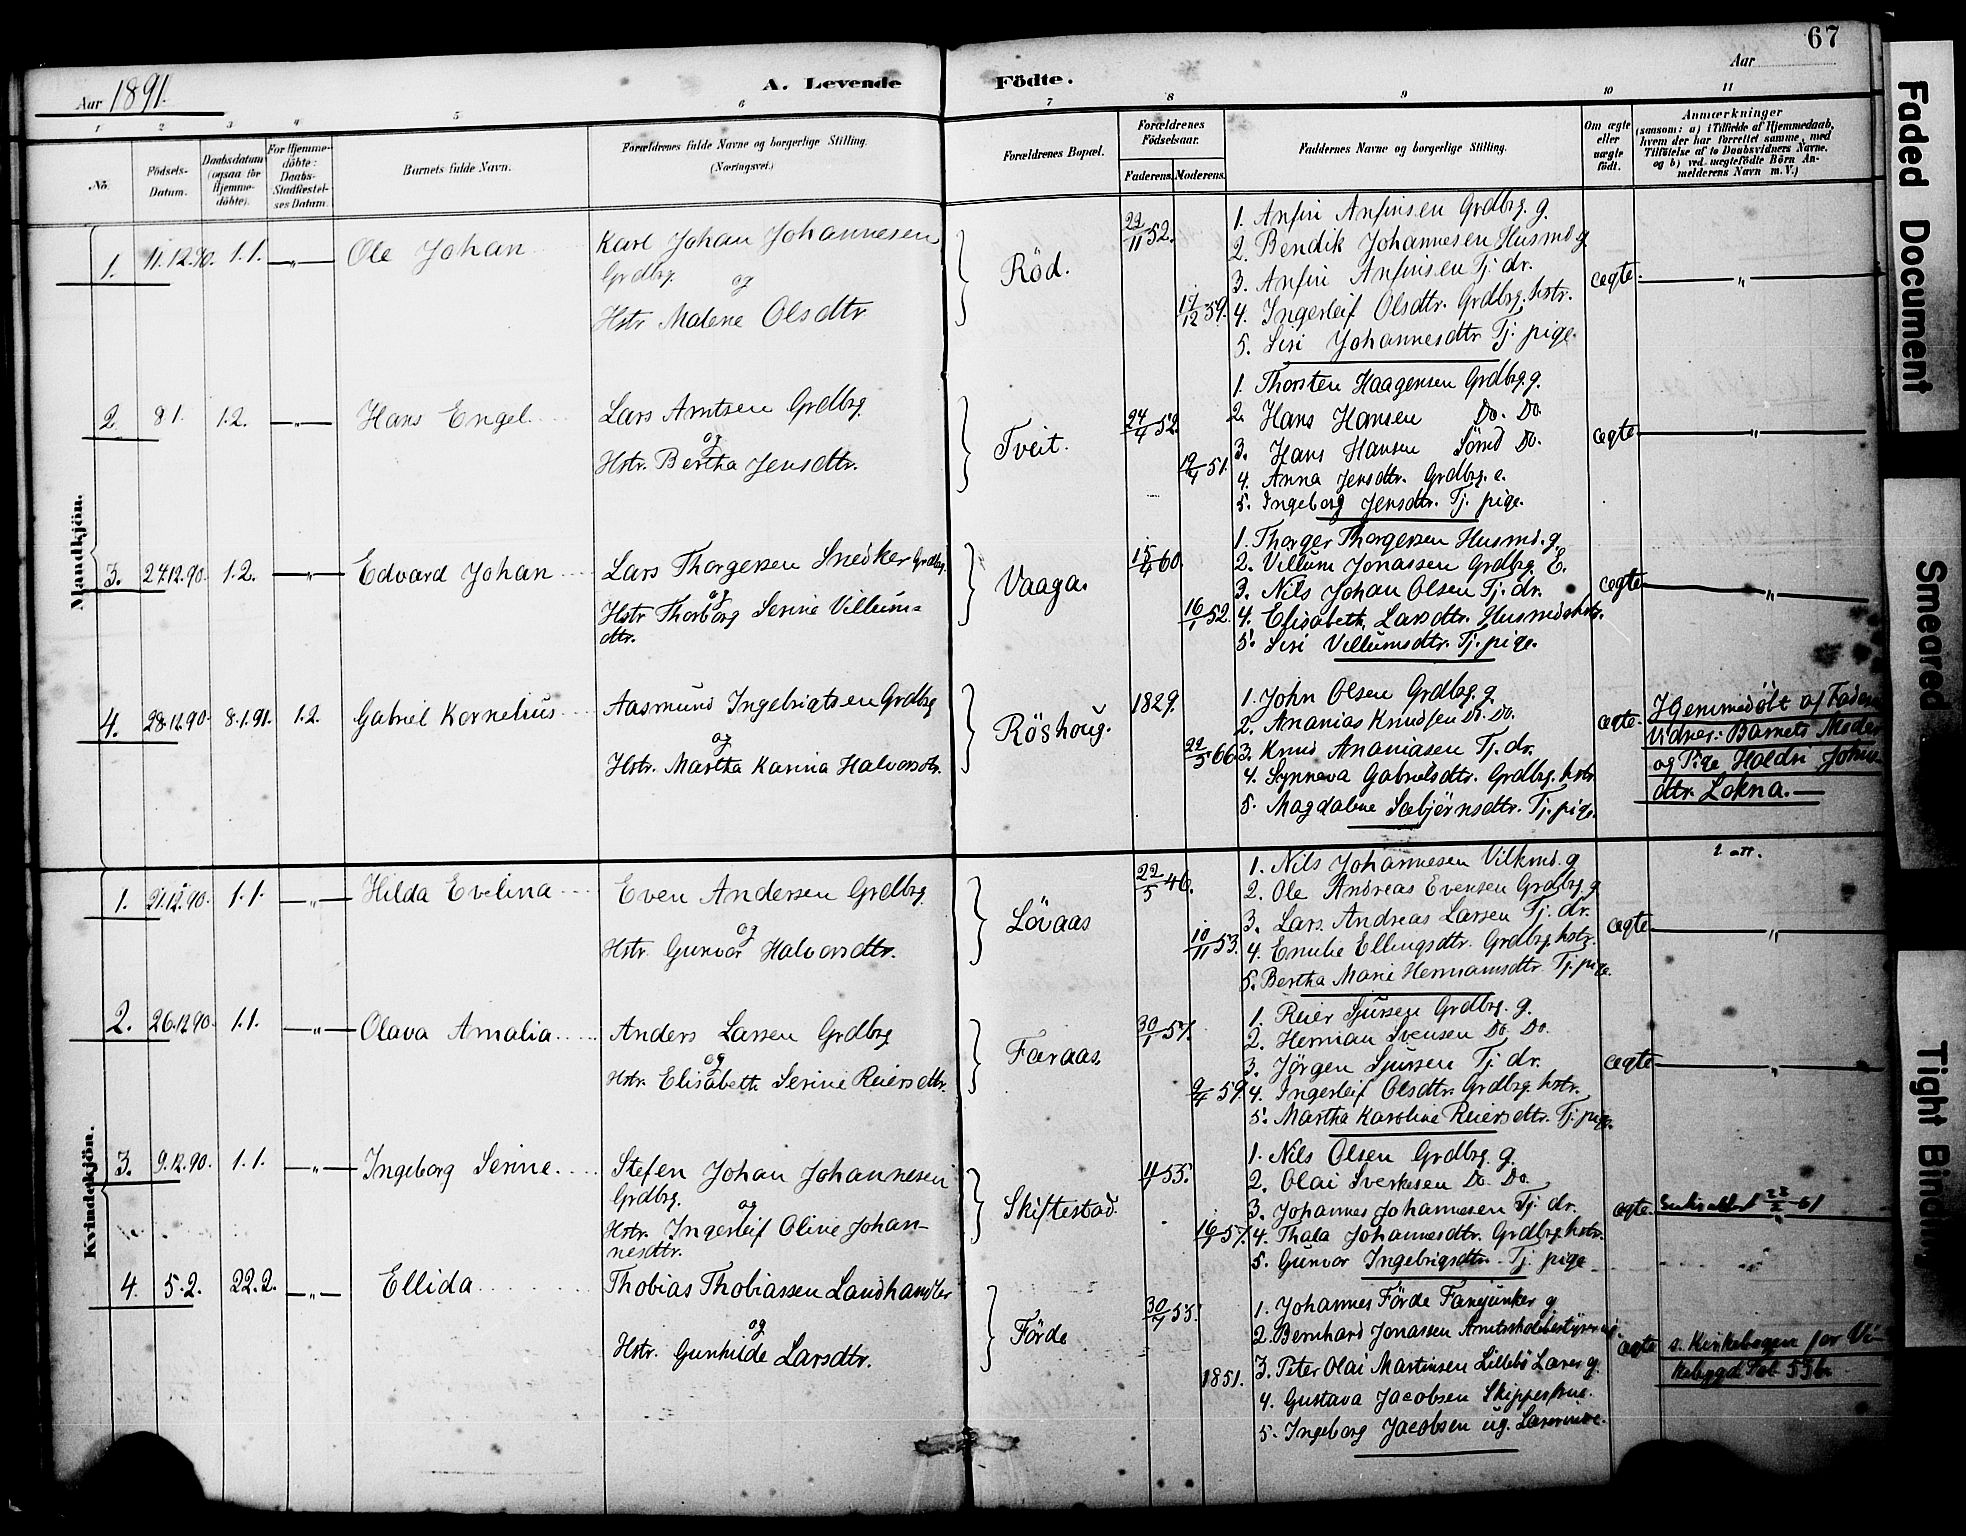 67
Aar 1891.
A. Levende Födte.
Aar
1 2 3 4 5 6 7 8 9 10 11
No.
Födsels-Datum.
Daabsdatum (ogsaa for Hjemme-döbte).
For Hjemme-döbte: Daabs-Stadfæstel-ses Datum.
Barnets fulde Navn.
Forældrenes fulde Navne og borgerlige Stilling.
(Næringsvei.)
Forældrenes Bopæl.
Forældrenes Födselsaar.
Faderens. Moderens.
Faddernes Navne og borgerlige Stilling.
Om ægte eller uægte födt.
Anmærkninger
(saasom: a) i Tilfælde af Hjemmedaab, hvem der har forrettet samme, med Tilföielse af to Daabsvidners Navne, og b) ved uægtefödte Börn An-melderens Navn m. V.)
Mandkjön.
1. 11.12.90. 1.1. -"- Ole Johan
Karl Johan Johannesen
Grdbrg. og
Hstr Malene Olsdtr
Röd.
22/11 52.
17/12 59.
1. Anfin Anfinsen Grdbrg. g.
2. Bendik Johannesen Husmd g
3. Anfin Anfinsen Tj. dr.
4. Ingerleif Olsdtr. Grdbrg. hstr.
5. Siri Johannesdtr Tj. pige.
ægte -"-
2. 8 1. 1.2. -"- Hans Engel
Lars Arntsen Grdbrg.
og
Hstr. Bertha Jensdtr.
Tveit.
24/4 52
51.
1. Thorsten Haagensen Grdbrg. g.
2. Hans Hansen Do. Do.
3. Hans Hansen Do.
4. Anna Jensdtr. Grdbrg. e.
5. Ingeborg Jensdtr. Tj. pige.
ægte -"-
3. 27.12.90. 1.2. -"- Edvard Johan
Lars Thorgersen Snedker Grdbrg.
og
Hstr Thorborg Serine Villums=
dtr.
Vaaga.
15/4 60.
16/1 52.
1. Thorger Thorgersen Husmd. g
2. Villum Jonassen Grdbrg. E.
3. Nils Johan Olsen Tj. dr.
4. Elisabeth Larsdtr. Husmdshstr.
5. Siri Villumsdtr. Tj. pige.
ægte -"-
4. 28.12.90. 8.1.91. 1.2. Gabriel Kornelius
Aasmund Ingebrigtsen Grdbrg
og
Hstr. Martha Karina Halvorsdtr.
Röshoug.
1829.
22/5 66
1. John Olsen Grdbrg. g
2. Ananias Knudsen Do. Do.
3. Knud Ananiasen Tj. dr.
4. Synneva Gabrielsdtr. Grdbrg. hstr.
5. Magdalene Sæbjörnsdtr. Tj. pige.
ægte.
Hjemmedöbt af Faderen
Vidner: Barnets Moder
og Pige
dtr. Lokna. —
Kvindekjön.
1. 21.12.90. 1.1. -"- Hilda Evelina
Even Andersen Grdbrg.
og
Hstr. Gunvor Halvorsdtr.
Lövaas
22/5 46.
10/11 53.
1. Nils Johannesen g
2. Ole Andreas Evensen Grdbrg. g
3. Lars Andreas Larsen Tj. dr.
4. Emilie Ellingsdtr. Grdbrg. hstr.
5. Bertha Marie Hermansdtr. Tj. pige.
ægte -"-
2. 26.12.90. 1.1. -"- Olava Amalia
Anders Larsen Grdbrg
og
Hstr. Elisabeth Serine Reiersdtr.
Færaas.
30/1 57.
9/4 59.
1. Reier Sjursen Grdbrg. g.
2. Herman Svensen Do. Do.
3. Jörgen Sjursen Tj. dr.
4. Ingerleif Olsdtr. Grdbrg. hstr.
5. Martha Karoline Reiersdtr. Tj. pige.
ægte -"-
3. 9.12.90. 1.1. -"- Ingeborg Serine.
Stefen Johan Johannesen
Grdbrg. og
Hstr. Ingerleif Olive Johan-
nesdtr.
Skiftestad.
55.
57.
1. Nils Olsen Grdbrg. g.
2. Olai Sverkesen Do. Do.
3. Johannes Johannesen Tj. dr.
4. Thala Johannesdtr. Grdbrg. hstr.
5. Gunvor Ingebrigsdtr. Tj. pige
ægte.
4. 5.2. 22.2. -"- Ellida
Thobias Thobiassen Landhandler
og
Hstr. Gunhilde Larsdtr.
Förde
55.
1851.
1. Johannes Förde Fanejunker g
2. Bernhard Jonassen Amtsskolebestyrer ug.
3. Peter Olai Martinsen Lillebö Lærer g.
4. Gustava Jacobsen Skipperfrue.
5. Ingeborg Jacobsen ug. Lærerinde.
ægte
s. Kirkebogen for Vi-
kebygd Fol. 53b.
Faded Document
Smeared
Tight Binding